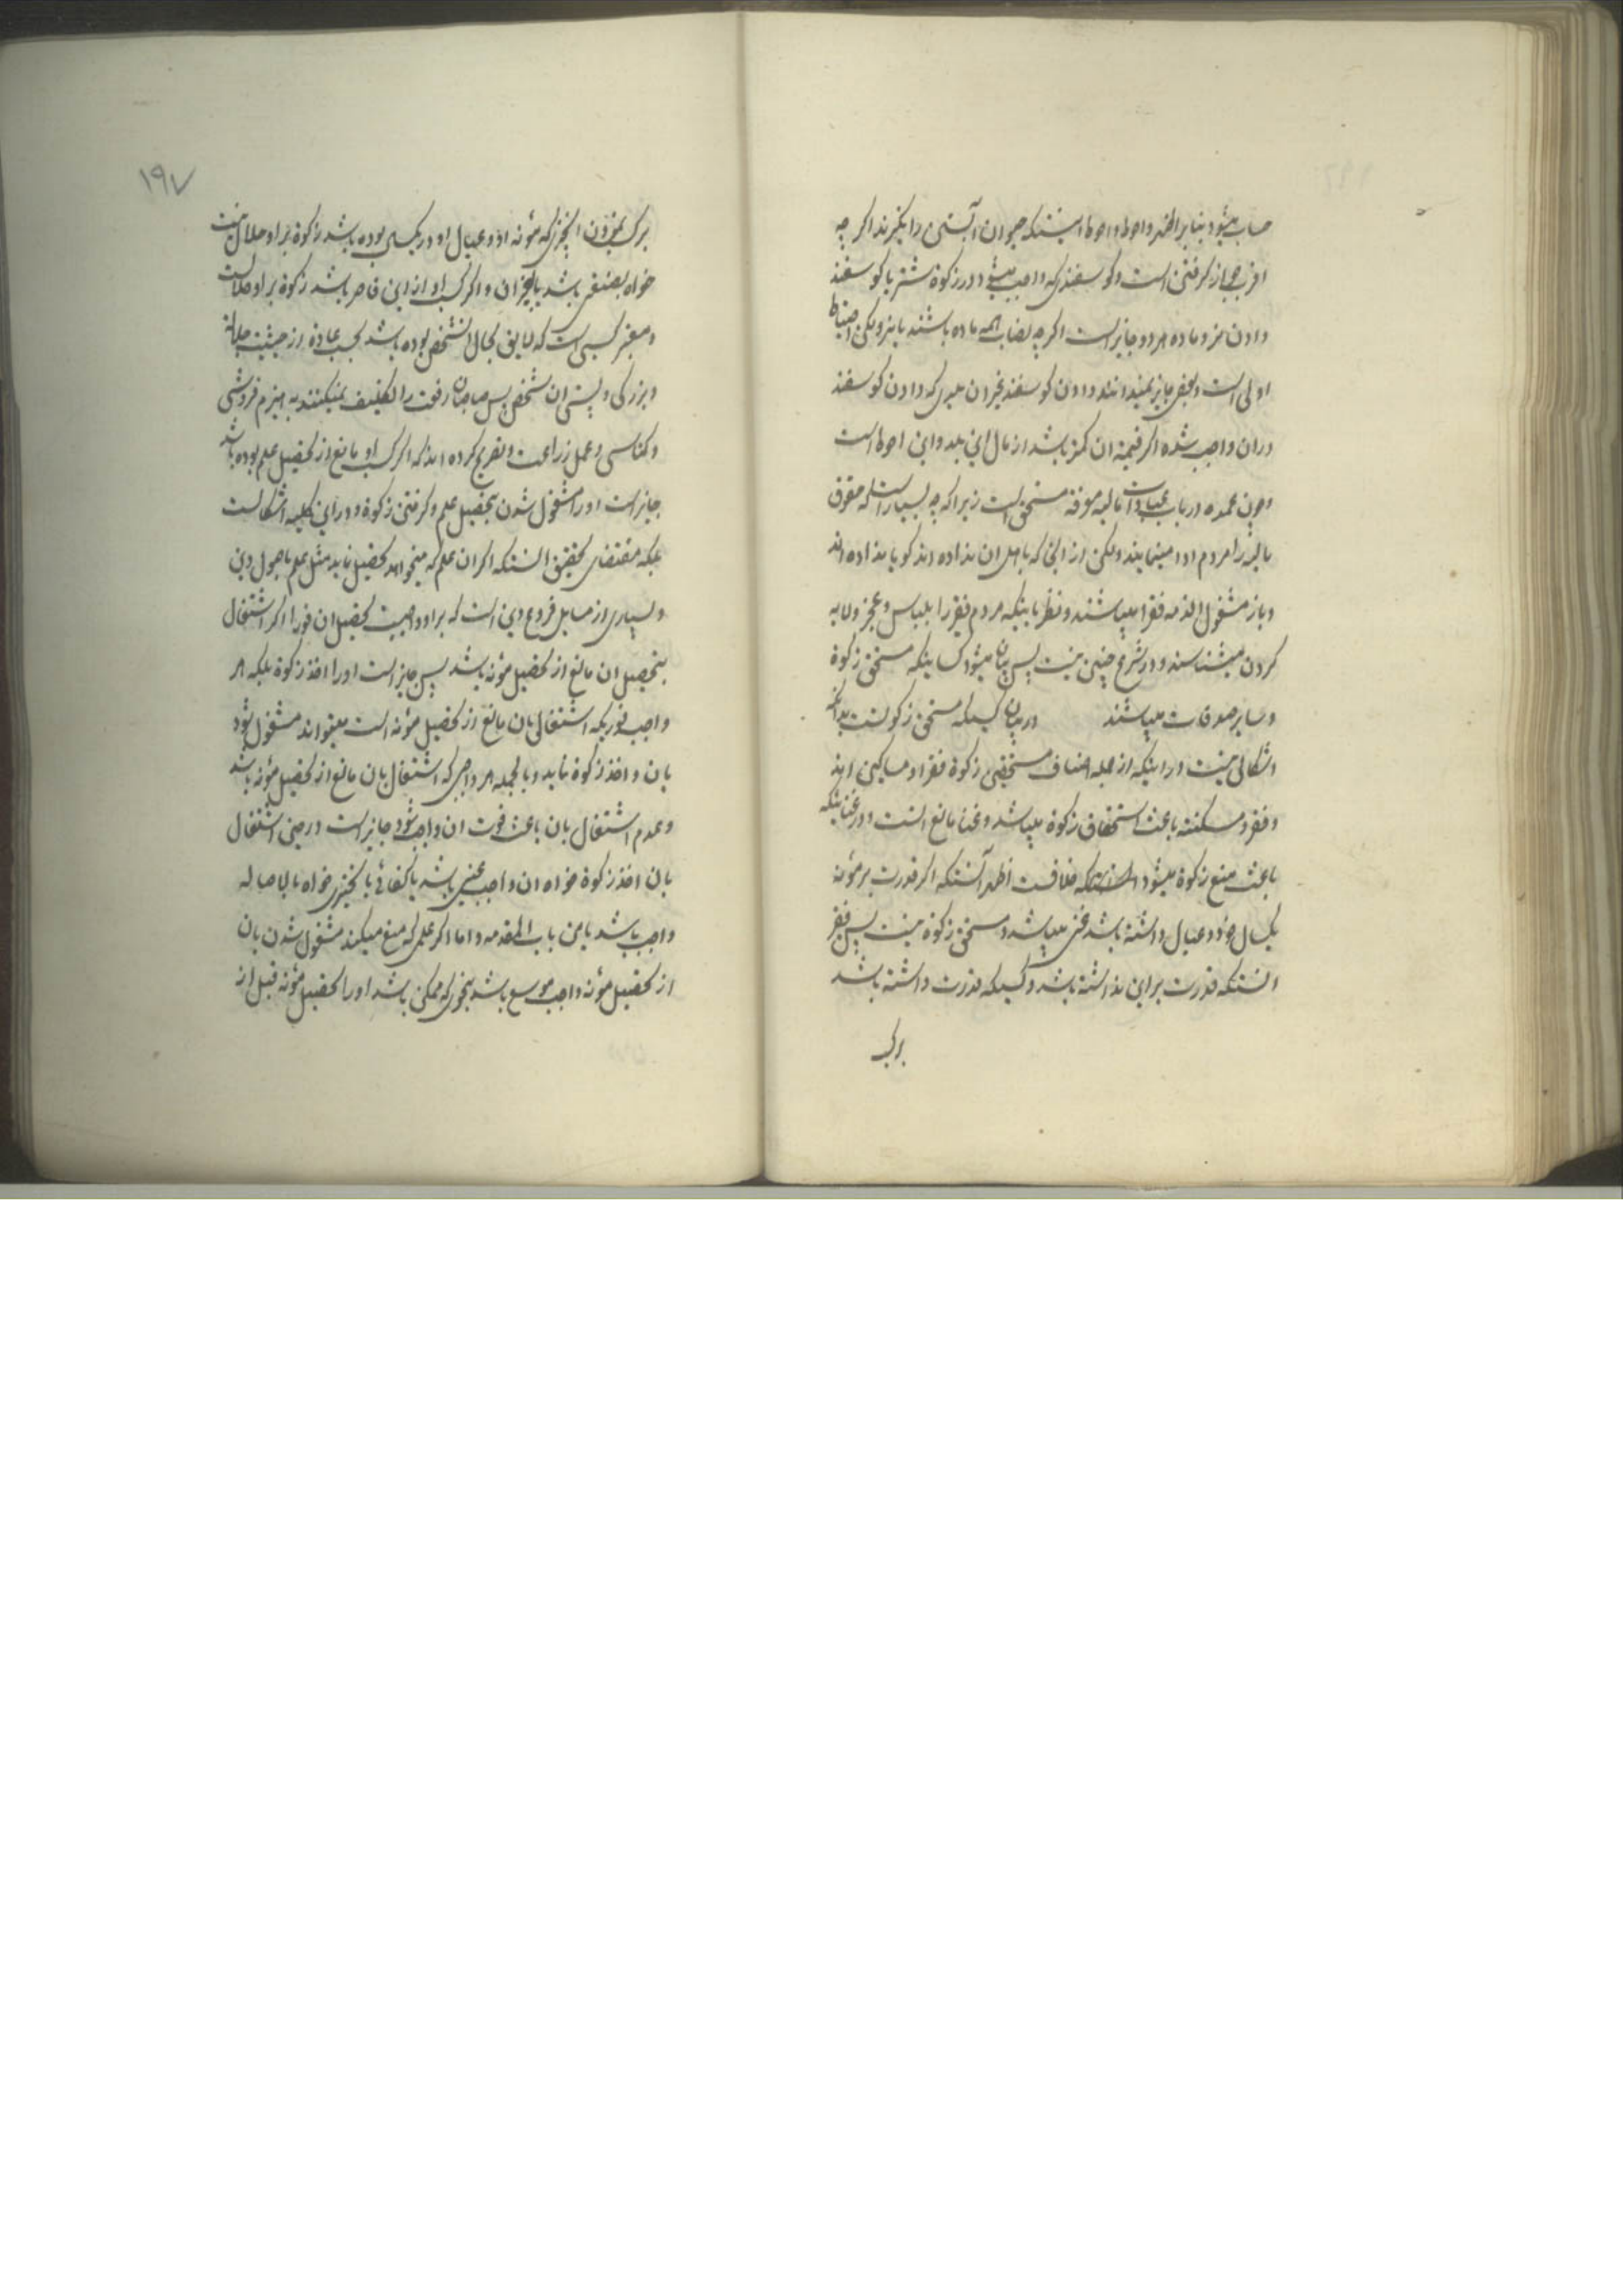 حساب میشود بنابر اظهر و احوط و احوط اینستکه حیوان آبستن را نگیرند اگر چه
اقرب جواز گرفتن است و گوسفندیکه واجب میشود در زکوة شتر یا گوسفند
دادن نر و ماده هر دو جایز است اگر چه نصاب همه ماده باشند یا نر ولکن احتیاط
اولی است و بعضی جایز نمیدانند دادن گوسفند غیر ان بلدی که دادن گوسفند
در ان واجب شده اگر قیمة ان کمتر باشد از مال این بلد و این احوط است
و چون عمده در باب عبادات مالیه معرفة مستحق است زیرا که چه بسیار است که حقوق
مالیه را مردم ادا مینمایند ولکن از انجا که باهل ان نداده اند گویا نداده اند
و باز مشغول الذمه فقرا میباشند و نظر باینکه مردم فقر را بلباس و عجز و لابه
کردن میشناسند و در شرع چنین نیست پس بیان میشود کسانیکه مستحق زکوة
و سایر صدقات میباشند در بیان کسیکه مستحق زکوتست بدانکه
اشکالی نیست در اینکه از جمله اصناف مستحقین زکوة فقرا و مساکین اند
و فقر و مسکنت باعث استحقاق زکوة میباشد و غنا مانع است و در غنائیکه
باعث منع زکوة میشود خلافست اظهر آنستکه اگر قدرت بر مؤنه
یکسال خود و عیال داشته باشد غنی میباشد و مستحق زکوة نیست پس فقیر
انستکه قدرت بر این نداشته باشد و کسیکه قدرت داشته باشد
بر کسب
١٩٧
بر کسب نمودن انچیزیکه مؤنه او و عیال او در یکسال بوده باشد زکوة بر او حلال نیست
خواه بصنعتی باشد یا بغیر ان و اگر کسب او از این قاصر باشد زکوة بر او حلالست
و معتبر کسبی است که لایق بحال انشخص بوده باشد بحسب عادة از حیثیت جلالة
و بزرگی و پستی ان شخص پس صاحبان رفعت را تکلیف نمیکنند به هیزم فروشی
و کناسی و عمل زراعت و تصریح کرده اند که اگر کسب او مانع از تحصیل علم بوده باشد
جایز است او را مشغول شدن بتحصیل علم و گرفتن زکوة و در این کلیه اشکالست
بلکه مقتضای تحقیق انستکه اگر ان علم که میخواهد تحصیل نماید مثل علم باصول دین
و بسیاری از مسایل فروع دین است که بر او واجبست تحصیل ان فورا اگر اشتغال
بتحصیل ان مانع از تحصیل مؤنه باشد پس جایز است او را اخذ زکوة بلکه هر
واجب فوریکه اشتغال بان مانع از تحصیل مؤنه است میتواند مشغول شود
بان و اخذ زکوة نماید و بالجمله هر واجبی که اشتغال بان مانع از تحصیل مؤنه باشد
و عدم اشتغال بان باعث فوت ان واجب شود جایز است در حین اشتغال
بان اخذ زکوة خواه ان واجب عینی باشد یا کفائی یا تخییری خواه بالاصاله
واجب باشد یا من باب المقدمه و اما اگر علمی که منع میکند مشغول شدن بان
از تحصیل مؤنه واجب موسع باشد بنحوی که ممکن باشد او را تحصیل مؤنه قبل از